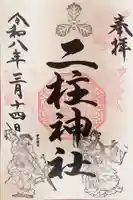 奉拝
二柱神社
令和八年三月十四日